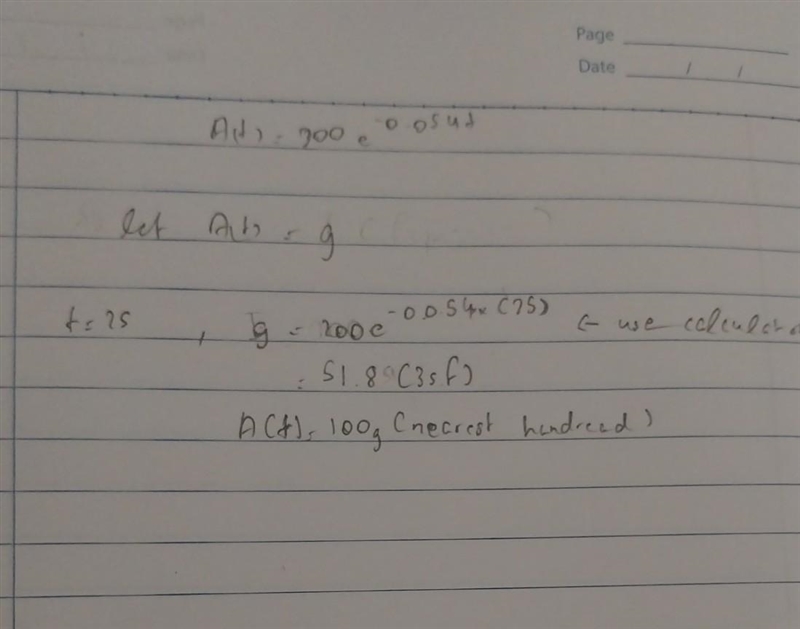 Page
Date / /
A(t) = 200 e^-0.054t
let A(t) = g
t = 25 , g = 200e^-0.054x(25) ← use calculator
= 51.8 (3sf)
A(t) = 100g (necrest hundread)